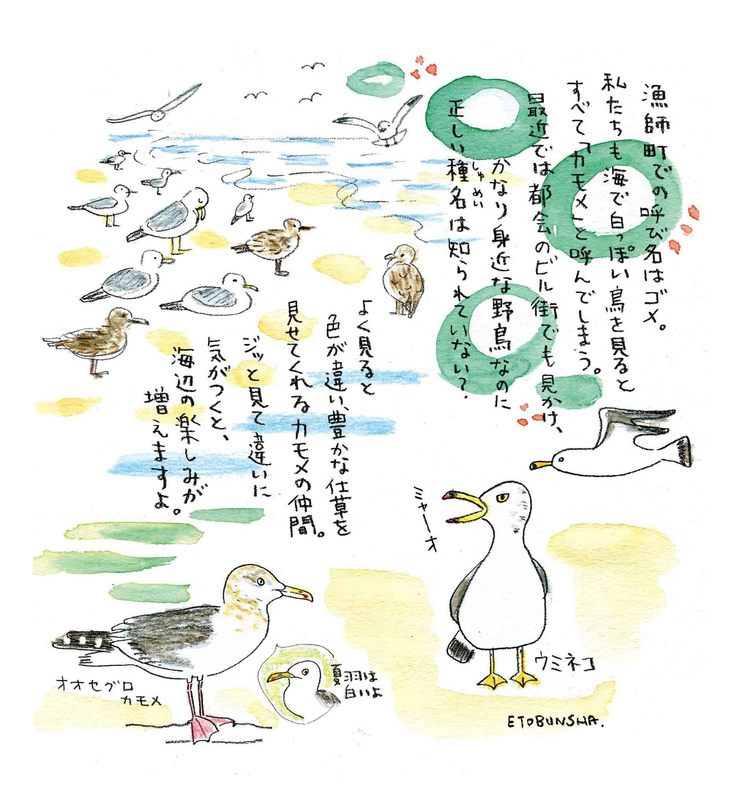 漁師町での呼び名はゴメ。
私たちも海で白っぽい鳥を見ると
すべて「カモメ」と呼んでしまう。
最近では都会のビル街でも見かけ、
かなり身近な野鳥なのに
しゅめい
正しい種名は知られていない?
よく見ると
色が違い、豊かな仕草を
見せてくれるカモメの仲間。
ジッと見て違いに
気がつくと、
海辺の楽しみが
増えますよ。
ミャーオ
ウミネコ
オオセグロ
カモメ
夏羽は
白いよ
ETOBUNSHA.